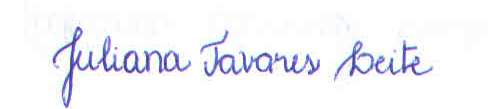 Juliana Tavares Leite